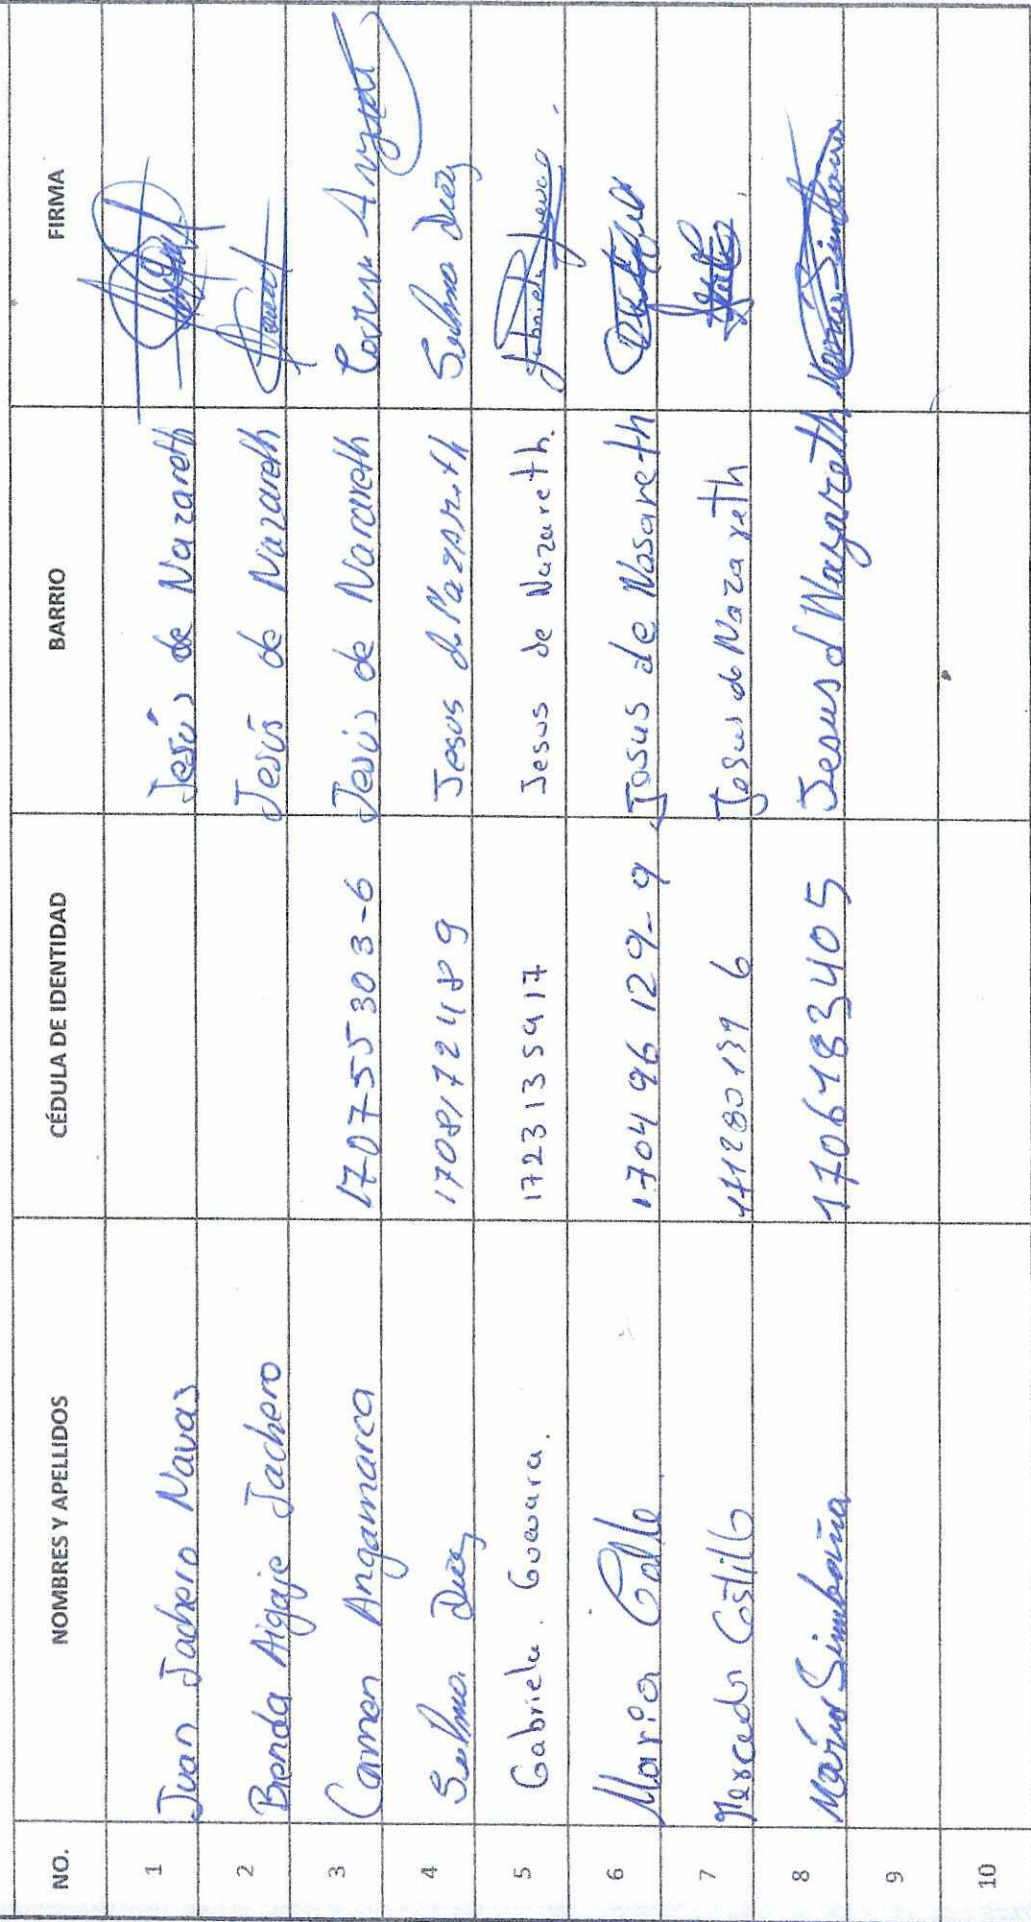 NO. NOMBRES Y APELLIDOS CÉDULA DE IDENTIDAD BARRIO FIRMA
1 Juan Jachero Navas Jesús de Nazareth
2 Brenda Aigaje Jachero Jesús de Nazareth
3 Carmen Angamarca 170755303-6 Jesús de Nazareth
4 Selmo Diez 1708172489 Jesus de Nazareth Selmo Diez
5 Gabriela. Guevara. 1723135917 Jesus de Nazareth.
6 Maria Calle 170496129-9 Josus de Nasareth
7 Mercedes Costillo 171280139 6 Josus de Nazareth
8 María Simbaña 1706183405 Jesus d Nazareth María Simbaña
9
10